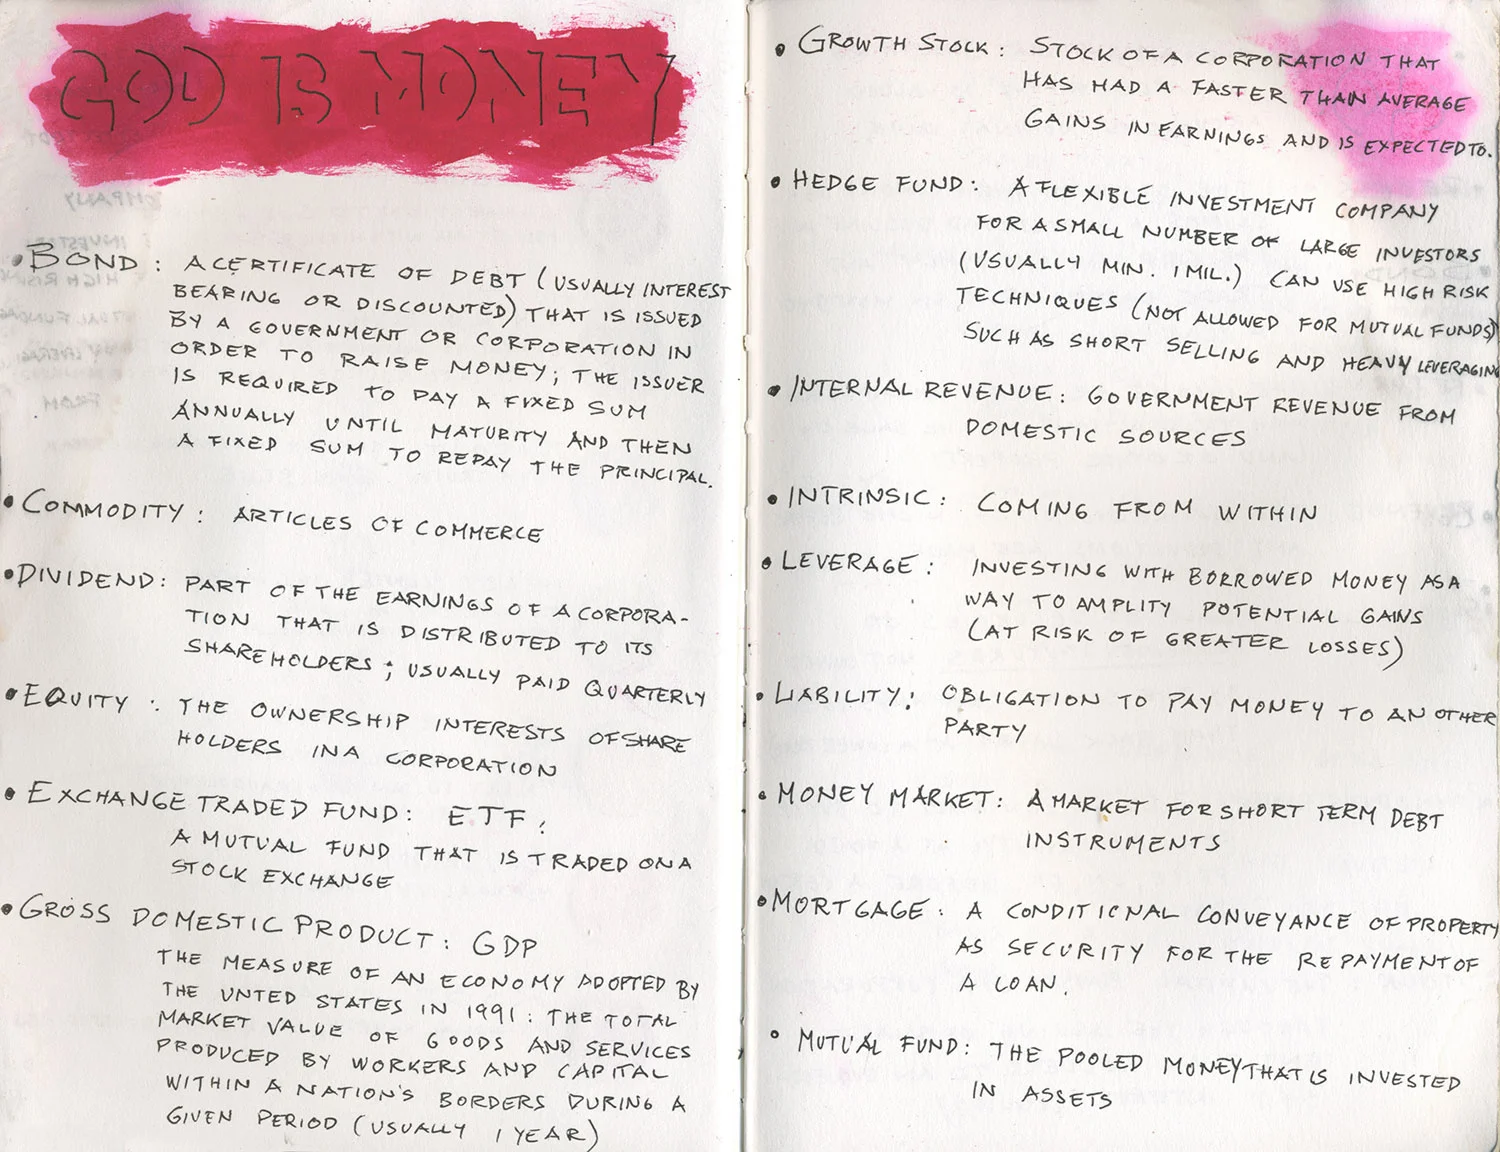 GOD IS MONEY
• BOND : A CERTIFICATE OF DEBT (USUALLY INTEREST
BEARING OR DISCOUNTED) THAT IS ISSUED
BY A GOVERNMENT OR CORPORATION IN
ORDER TO RAISE MONEY; THE ISSUER
IS REQUIRED TO PAY A FIXED SUM
ANNUALLY UNTIL MATURITY AND THEN
A FIXED SUM TO REPAY THE PRINCIPAL.
• COMMODITY : ARTICLES OF COMMERCE
• DIVIDEND : PART OF THE EARNINGS OF A CORPORA-
TION THAT IS DISTRIBUTED TO ITS
SHAREHOLDERS; USUALLY PAID QUARTERLY
• EQUITY : THE OWNERSHIP INTERESTS OF SHARE
HOLDERS IN A CORPORATION
• EXCHANGE TRADED FUND : ETF :
A MUTUAL FUND THAT IS TRADED ON A
STOCK EXCHANGE
• GROSS DOMESTIC PRODUCT : GDP
THE MEASURE OF AN ECONOMY ADOPTED BY
THE UNTED STATES IN 1991 : THE TOTAL
MARKET VALUE OF GOODS AND SERVICES
PRODUCED BY WORKERS AND CAPITAL
WITHIN A NATION'S BORDERS DURING A
GIVEN PERIOD (USUALLY 1 YEAR)
• GROWTH STOCK : STOCK OF A CORPORATION THAT
HAS HAD A FASTER THAN AVERAGE
GAINS IN EARNINGS AND IS EXPECTED TO.
• HEDGE FUND : A FLEXIBLE INVESTMENT COMPANY
FOR A SMALL NUMBER OF LARGE INVESTORS
(USUALLY MIN. 1 MIL.) CAN USE HIGH RISK
TECHNIQUES (NOT ALLOWED FOR MUTUAL FUNDS)
SUCH AS SHORT SELLING AND HEAVY LEVERAGING
• INTERNAL REVENUE : GOVERNMENT REVENUE FROM
DOMESTIC SOURCES
• INTRINSIC : COMING FROM WITHIN
• LEVERAGE : INVESTING WITH BORROWED MONEY AS A
WAY TO AMPLITY POTENTIAL GAINS
(AT RISK OF GREATER LOSSES)
• LIABILITY : OBLIGATION TO PAY MONEY TO AN OTHER
PARTY
• MONEY MARKET : A MARKET FOR SHORT TERM DEBT
INSTRUMENTS
• MORTGAGE : A CONDITIONAL CONVEYANCE OF PROPERTY
AS SECURITY FOR THE REPAYMENT OF
A LOAN.
• MUTUAL FUND : THE POOLED MONEY THAT IS INVESTED
IN ASSETS